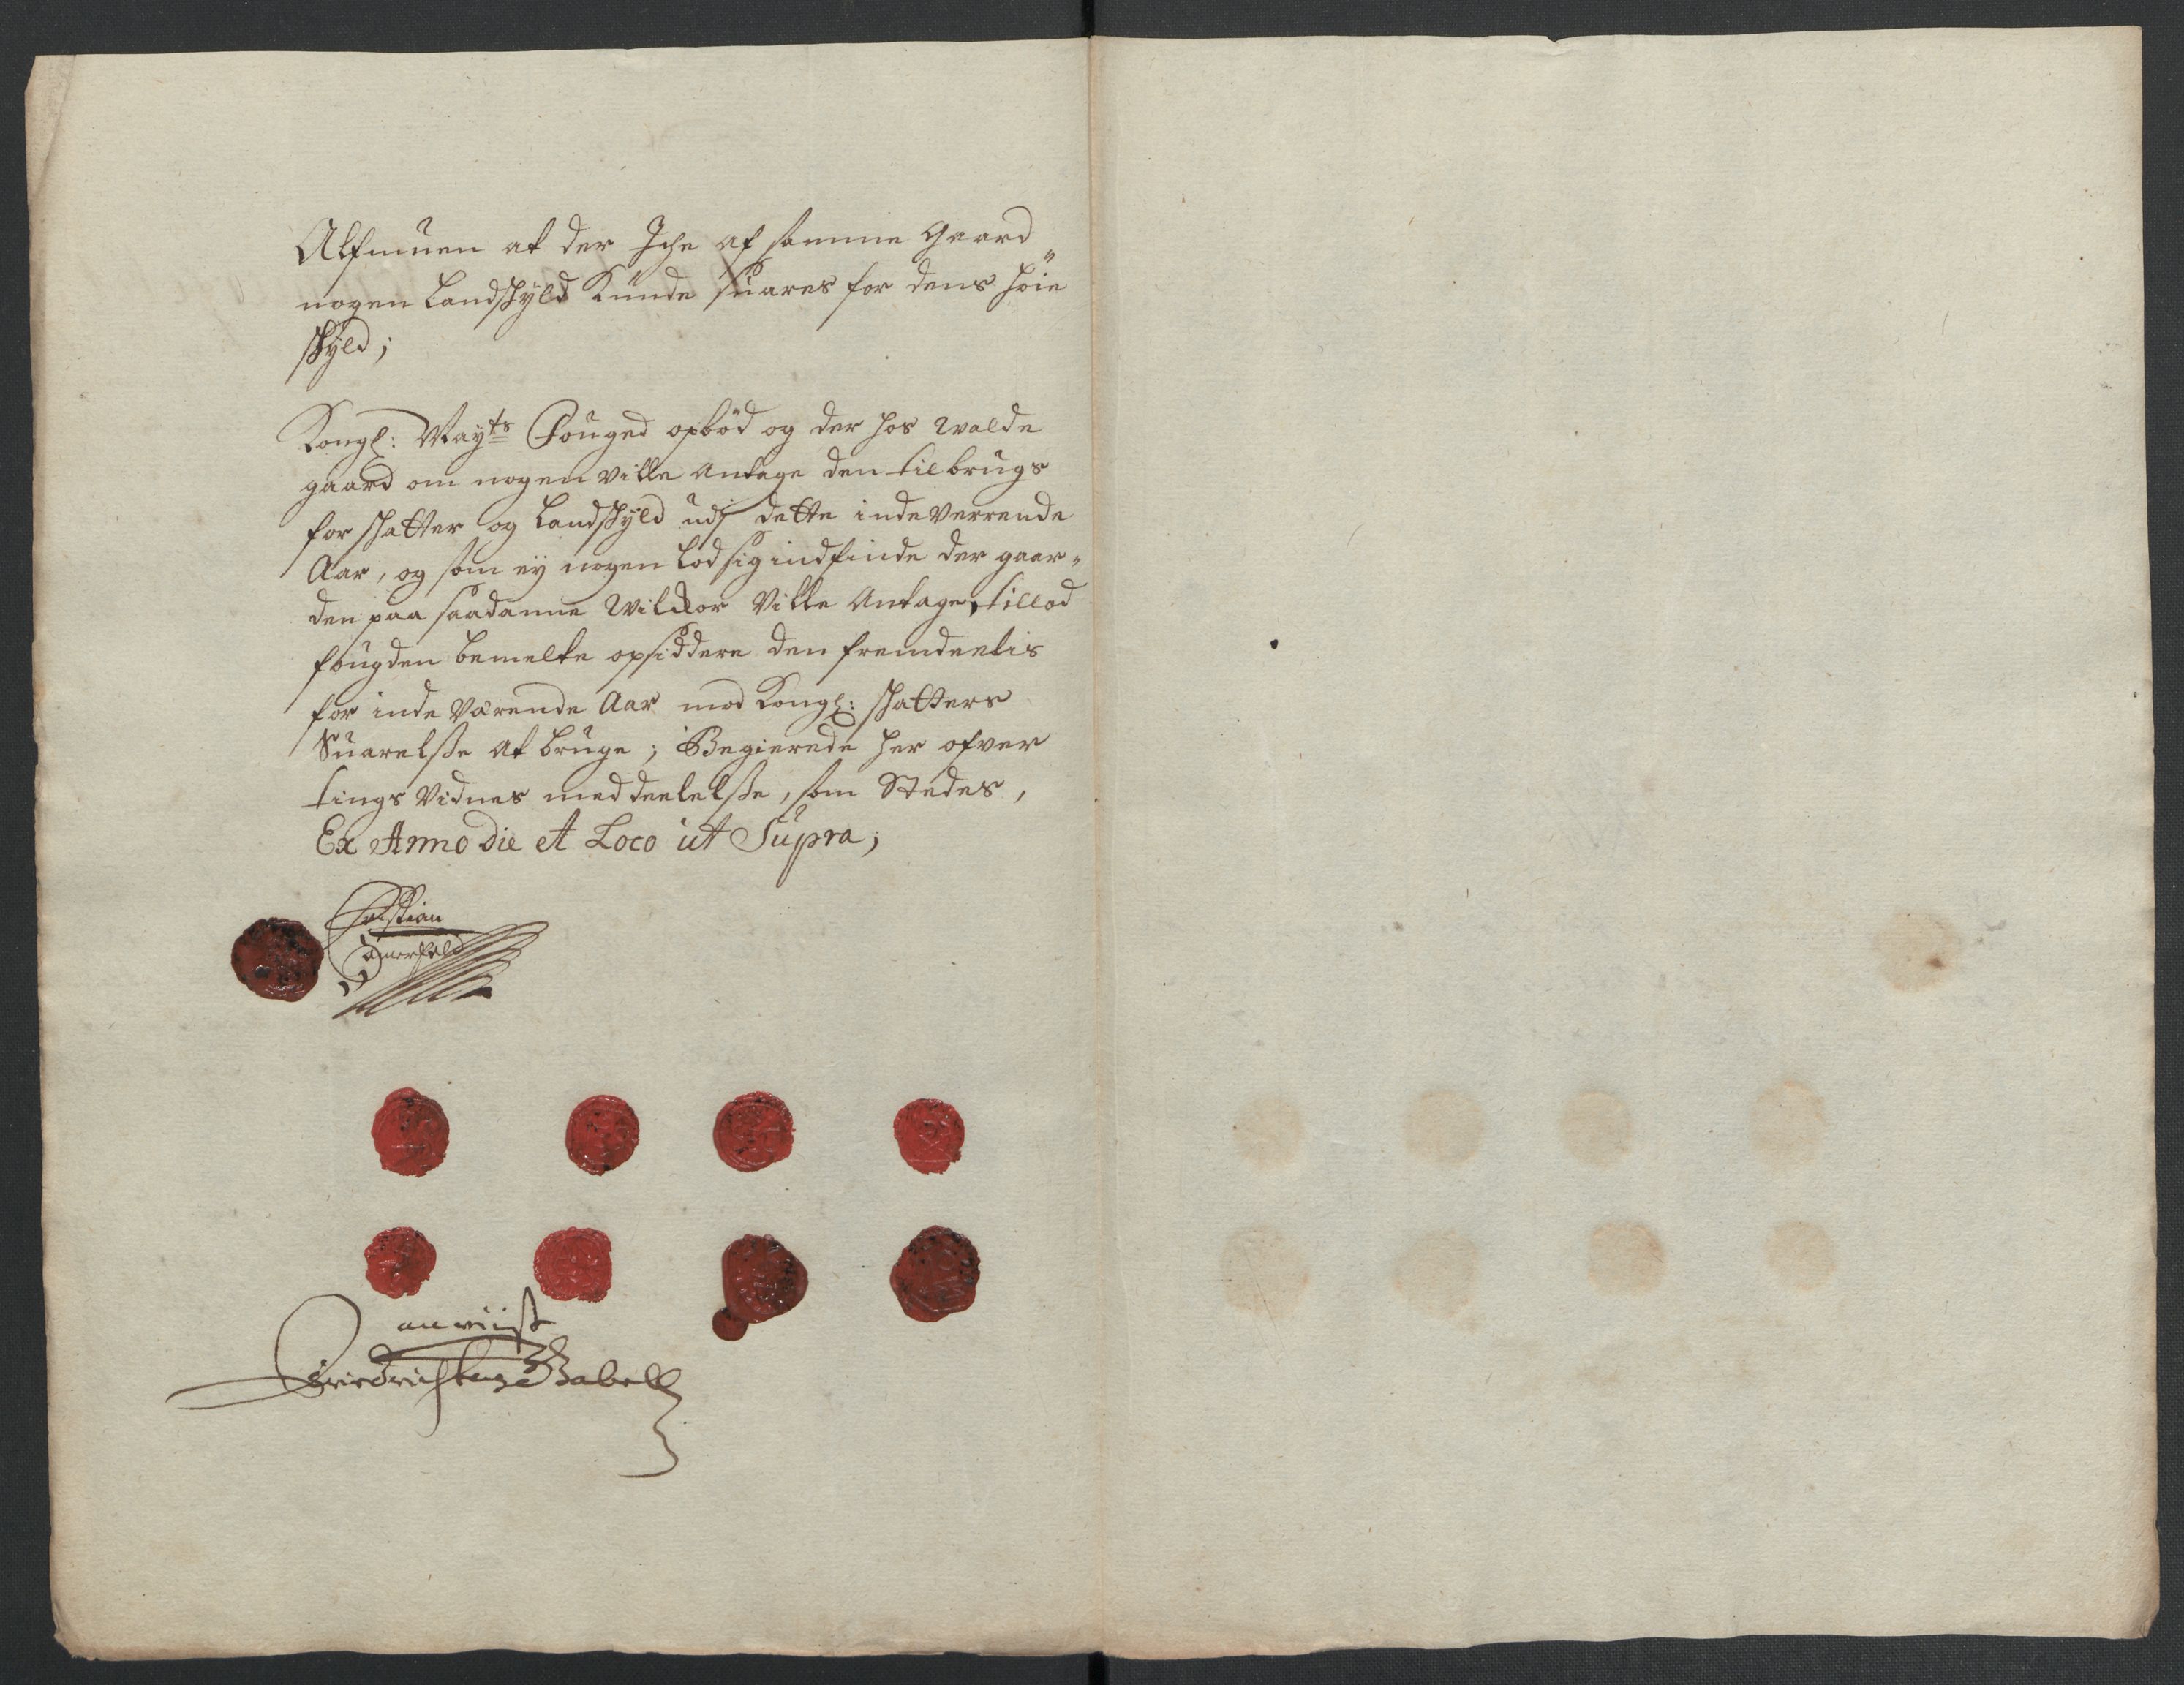 Alfmuen at der Iche af samme Gaard
nogen Landskyld Kunde suares for dens höie
skyld;
Kongl: Mayts Fouged opböd og der hos Walde
gaard om nogen ville Antage den til brugs
for skatter og Landskyld udj dette indeverrende
Aar, og som ey nogen lod sig indfinde der gaar-
den paa saadanne Wilckor Ville Antage, tillod
fougden bemelte opsiddere den fremdeelis
for inde Værende Aar mod Kongl: skatters
Suarelsse at bruge; Begierede her ofver
tings Vidnes meddeelelsse, som Stedes,
Ex Anno die et Loco ut Supra;
Christian
anviist
Friedrich Babell